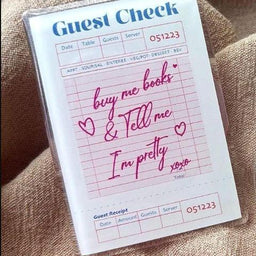 Guest Check
Date Table Guests Server 051223
APPT - SOUP/SAL - ENTREE - VEG/POT - DESSERT - BEV
buy me books
& Tell me
I'm pretty
xoxo
Total
Guest Receipt
Date Amount Guests Server 051223